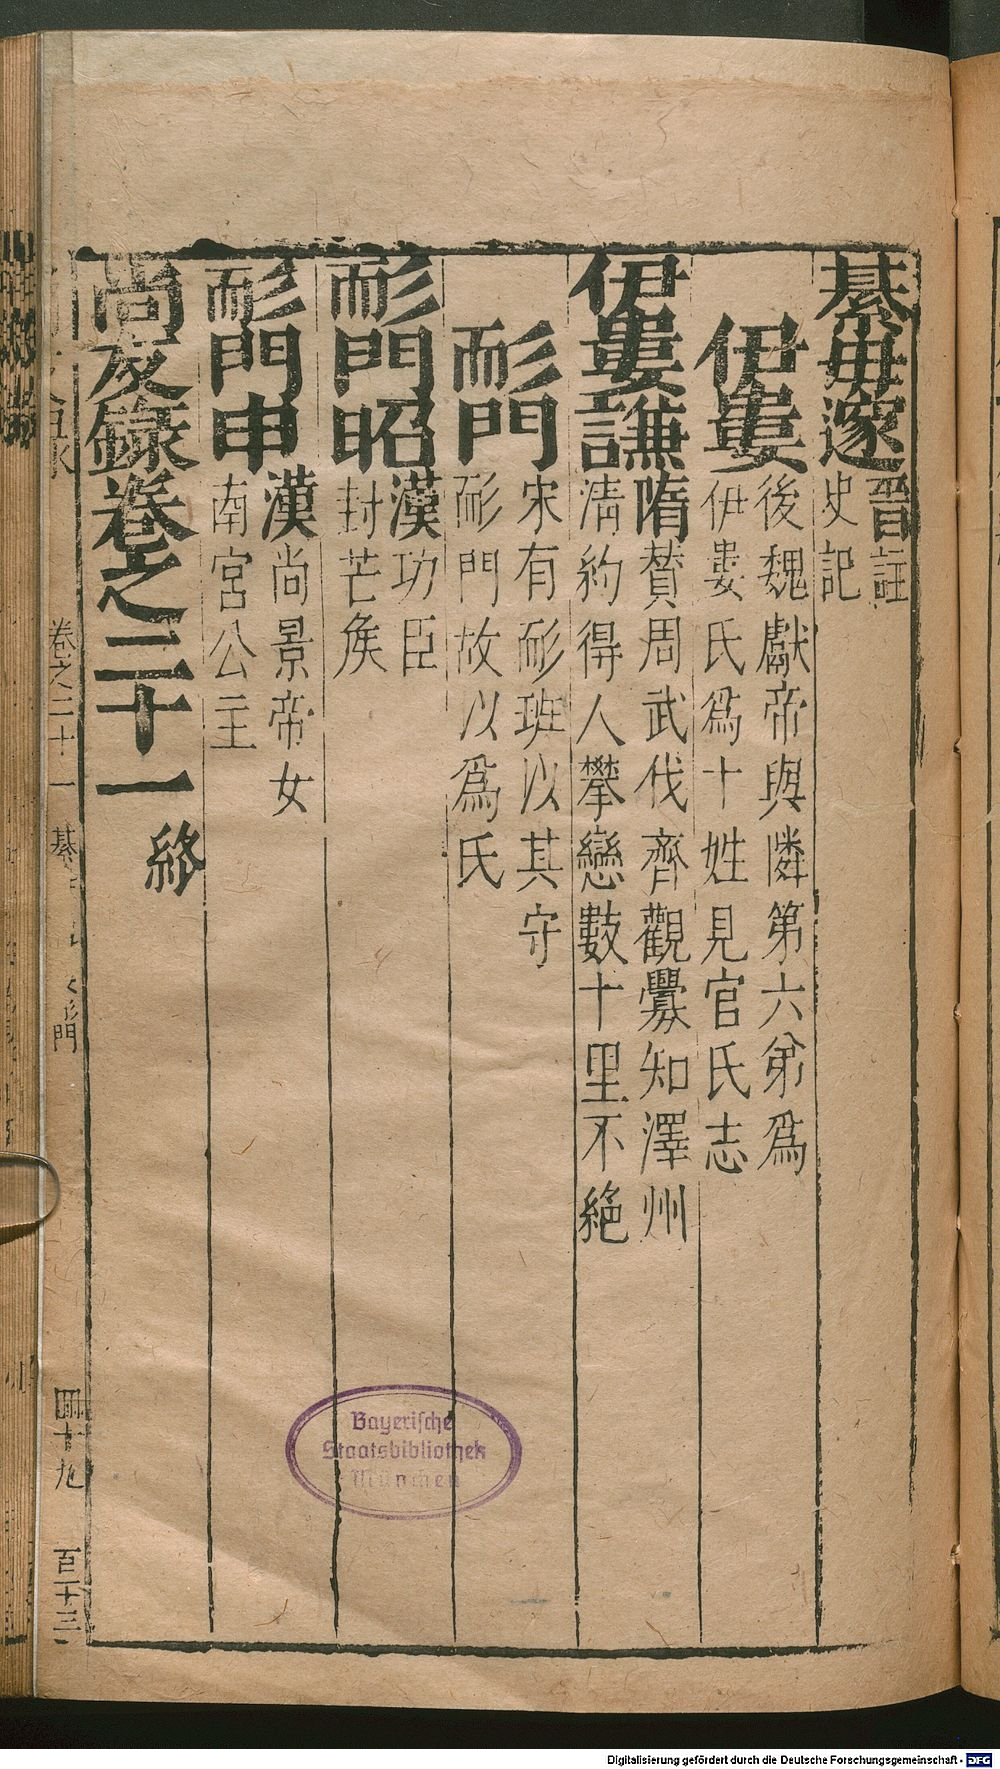 綦毋邃 晉註
史記
伊婁 後魏獻帝與隣第六弟爲
伊婁氏爲十姓見官氏志
伊婁謙 隋贊周武伐齊觀釁知澤州
清約得人攀戀數十里不絕
耏門 宋有耏班以其守
耏門故以爲氏
耏門昭 漢功臣
封芒矦
耏門申 漢尚景帝女
南宮公主
尚友錄卷之二十一 終
卷之二十一
綦
門
四十九
百二十三
Bayerische
Staatsbibliothek
München
Digitalisierung gefördert durch die Deutsche Forschungsgemeinschaft - DFG